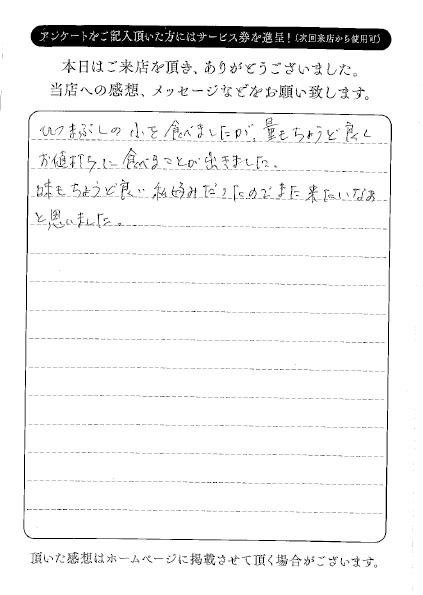 アンケートをご記入頂いた方にはサービス券を進呈！(次回来店から使用可)
本日はご来店を頂き、ありがとうございました。
当店への感想、メッセージなどをお願い致します。
ひつまぶしの小を食べましたが、量もちょうど良く
お値打ちに食べることが出きました。
味もちょうど良い私好みだったのでまた来たいなぁ
と思いました。
頂いた感想はホームページに掲載させて頂く場合がございます。